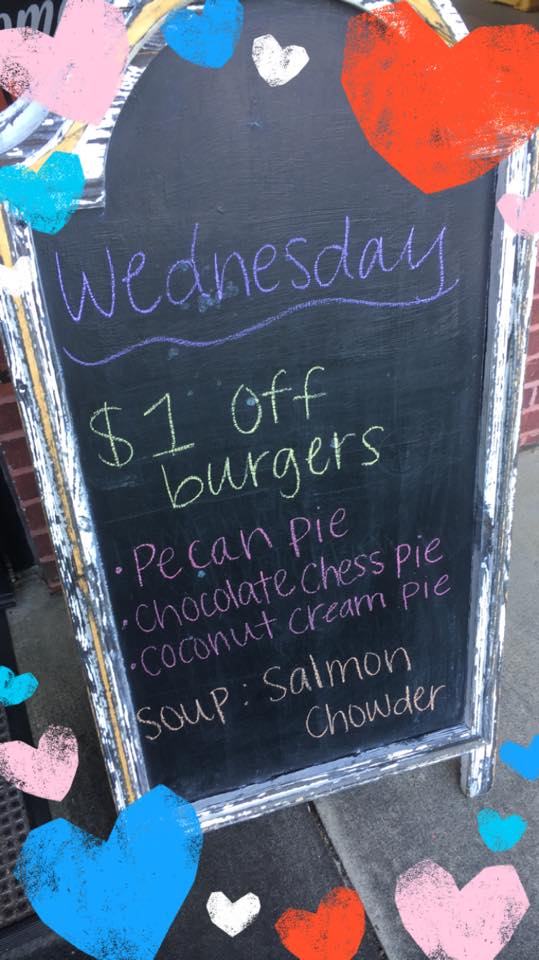 Wednesday
$1 Off
burgers
• Pecan Pie
• Chocolate Chess Pie
• Coconut Cream Pie
Soup: Salmon
Chowder